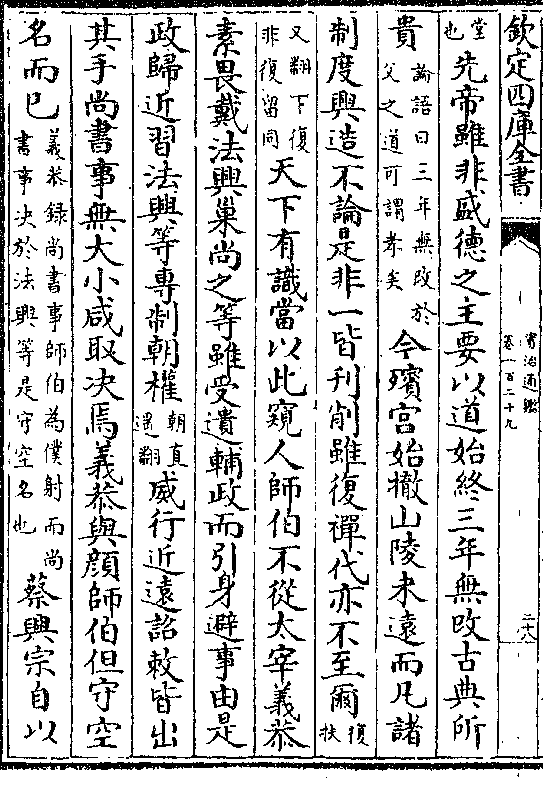 欽定四庫全書
資治通鑑
卷一百二十九
二十八
堂
也
先帝雖非盛德之主要以道始終三年無改古典所
貴
論語曰三年無改於
父之道可謂孝矣
今殯宮始撤山陵未遠而凡諸
制度興造不論是非一皆刋削雖復禪代亦不至爾
復
扶
又翻下復
非復留同
天下有識當以此窺人師伯不從太宰義恭
素畏戴法興巢尚之等雖受遺輔政而引身避事由是
政歸近習法興等專制朝權
朝直
遥翻
威行近遠詔敕皆出
其手尚書事無大小咸取决焉義恭與顔師伯但守空
名而已
義恭録尚書事師伯為僕射而尚
書事决於法興等是守空名也
蔡興宗自以